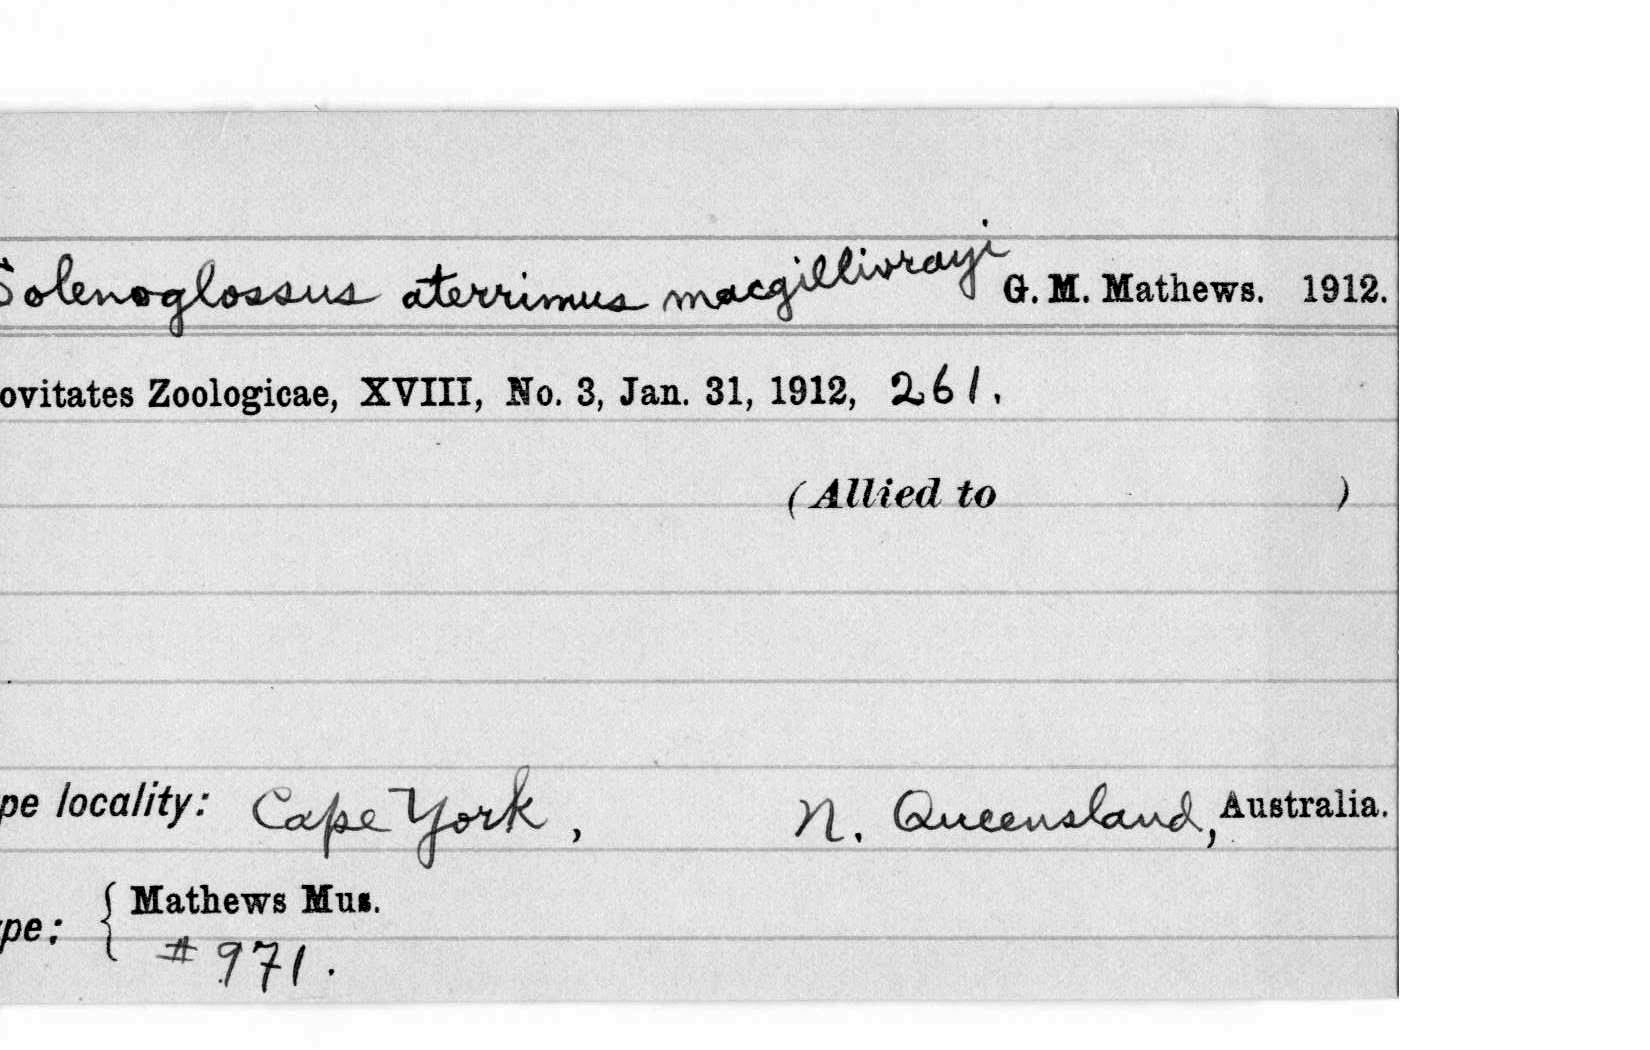 Solenoglossus aterrimus macgillivrayi G. M. Mathews. 1912.
ovitates Zoologicae, XVIII, No. 3, Jan. 31, 1912, 261.
(Allied to )
pe locality: Cape York, N. Queensland, Australia.
ype: { Mathews Mus.
# 971.